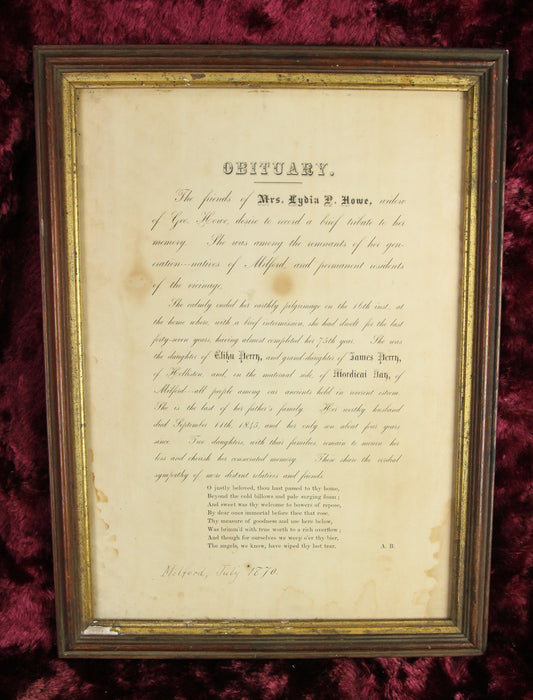 OBITUARY.
The friends of Mrs. Lydia P. Howe, widow
of Geo. Howe, desire to record a brief tribute to her
memory. She was among the remnants of her gen-
eration—natives of Milford, and permanent residents
of the vicinage.
She calmly ended her earthly pilgrimage on the 16th inst. at
the home where, with a brief intermission, she had dwelt for the last
forty-seven years, having almost completed her 75th year. She was
the daughter of Elihu Perry, and grand daughter of James Perry,
of Holliston, and, on the maternal side, of Mordicai Day, of
Milford—all people among our ancients held in reverent esteem.
She is the last of her father's family. Her worthy husband
died September 11th, 1845, and her only son about four years
since. Two daughters, with their families, remain to mourn her
loss and cherish her consecrated memory. These share the cordial
sympathy of more distant relatives and friends.
O justly beloved, thou hast passed to thy home,
Beyond the cold billows and pale surging foam;
And sweet was thy welcome to bowers of repose,
By dear ones immortal before thee that rose.
Thy measure of goodness and use here below,
Was brimm'd with true worth to a rich overflow;
And though for ourselves we weep o'er thy bier,
The angels, we know, have wiped thy last tear. A. B.
Milford, July 1870.